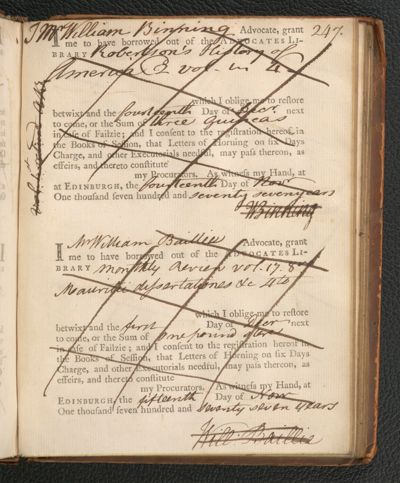 I Mr William Binning Advocate, grant 247.
me to have borrowed out of the ADVOCATES LI-
BRARY Robertson's History of
America 2 vol. in 4to
which I oblige me to restore
betwixt and the fourteenth Day of Decr. next
to come, or the Sum of three Guineas
in case of Failzie; and I consent to the registration hereof in
the Books of Session, that Letters of Horning on six Days
Charge, and other Executorials needful, may pass thereon, as
effeirs, and thereto constitute
my Procurators. As witness my Hand, at
at EDINBURGH, the fourteenth Day of Novr.
One thousand seven hundred and seventy seven years
WBinning
I Mr William Baillie Advocate, grant
me to have borrowed out of the ADVOCATES LI-
BRARY monthly Review vol. 17. 8vo
dissertationes &c 4to
which I oblige me to restore
betwixt and the first Day of Decr next
to come, or the Sum of one pound
in case of Failzie; and I consent to the registration hereof in
the Books of Session, that Letters of Horning on six Days
Charge, and other Executorials needful, may pass thereon, as
effeirs, and thereto constitute
my Procurators. As witness my Hand, at
EDINBURGH, the fifteenth Day of Novr
One thousand seven hundred and seventy seven years
Will: Baillie